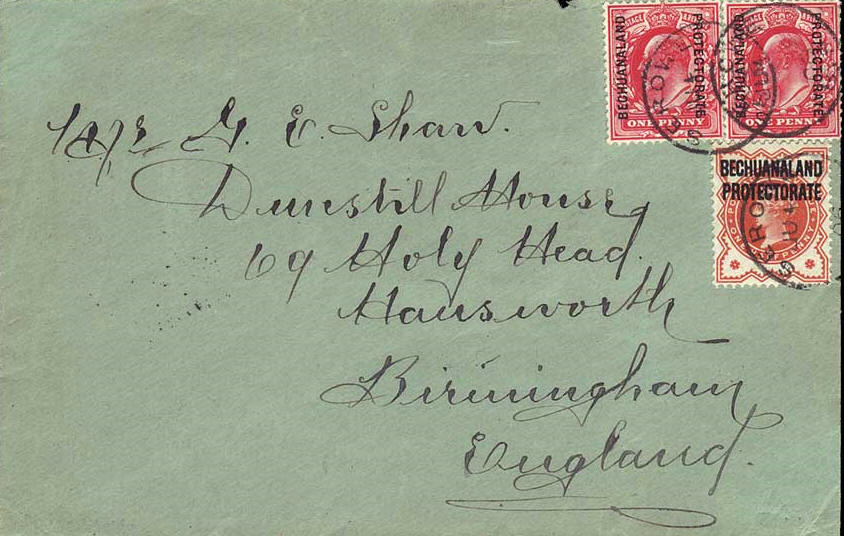 BECHUANALAND PROTECTORATE
ONE PENNY
BECHUANALAND PROTECTORATE
ONE PENNY
BECHUANALAND
PROTECTORATE
SEROWE
G. E. Shaw.
Dunstill House,
69 Holy Head.
Hansworth
Birmingham
England.